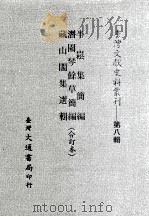 臺灣文献史料叢刊　第八輯
半崧集簡編
潛園琴餘草簡編
蔵山閣集選輯
(合訂本)
臺灣大通書局印行